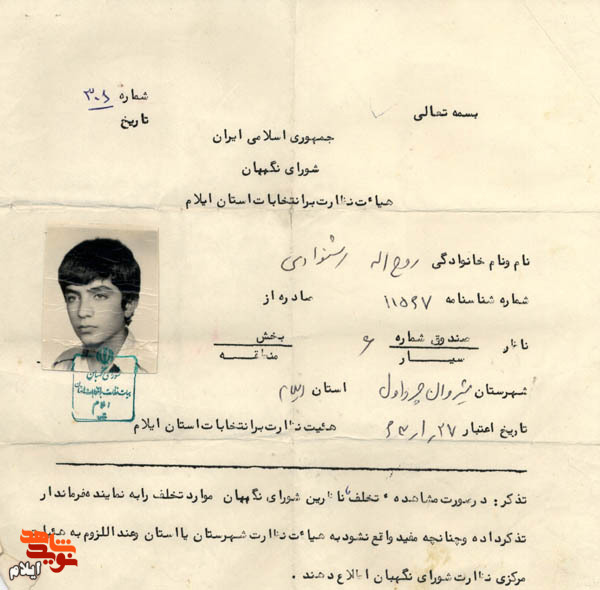 بسمه تعالی
شماره ۳۰۶
تاریخ
جمهوری اسلامی ایران
شورای نگهبان
هیاءت نظارت بر انتخابات استان ایلام
نام و نام خانوادگی روح اله
شماره شناسنامه ۱۱۵۶۷ صادره از
ناظر صندوق شماره ۶ بخش
سیار منطقه
شهرستان شیروان چرداول استان ایلام
تاریخ اعتبار هئیت نظارت بر انتخابات استان ایلام
شورای نگهبان
هیات نظارت بر انتخابات استان
ایلام
تذکر: درصورت مشاهدهء تخلف ناظرین شورای نگهبان موارد تخلف را به نماینده فرماندار
تذکر داده و چنانچه مفید واقع نشود به هیاءت نظارت شهرستان یا استان و عند اللزوم به
مرکزی نظارت شورای نگهبان اطلاع دهند .
نوید شاهد
ایلام